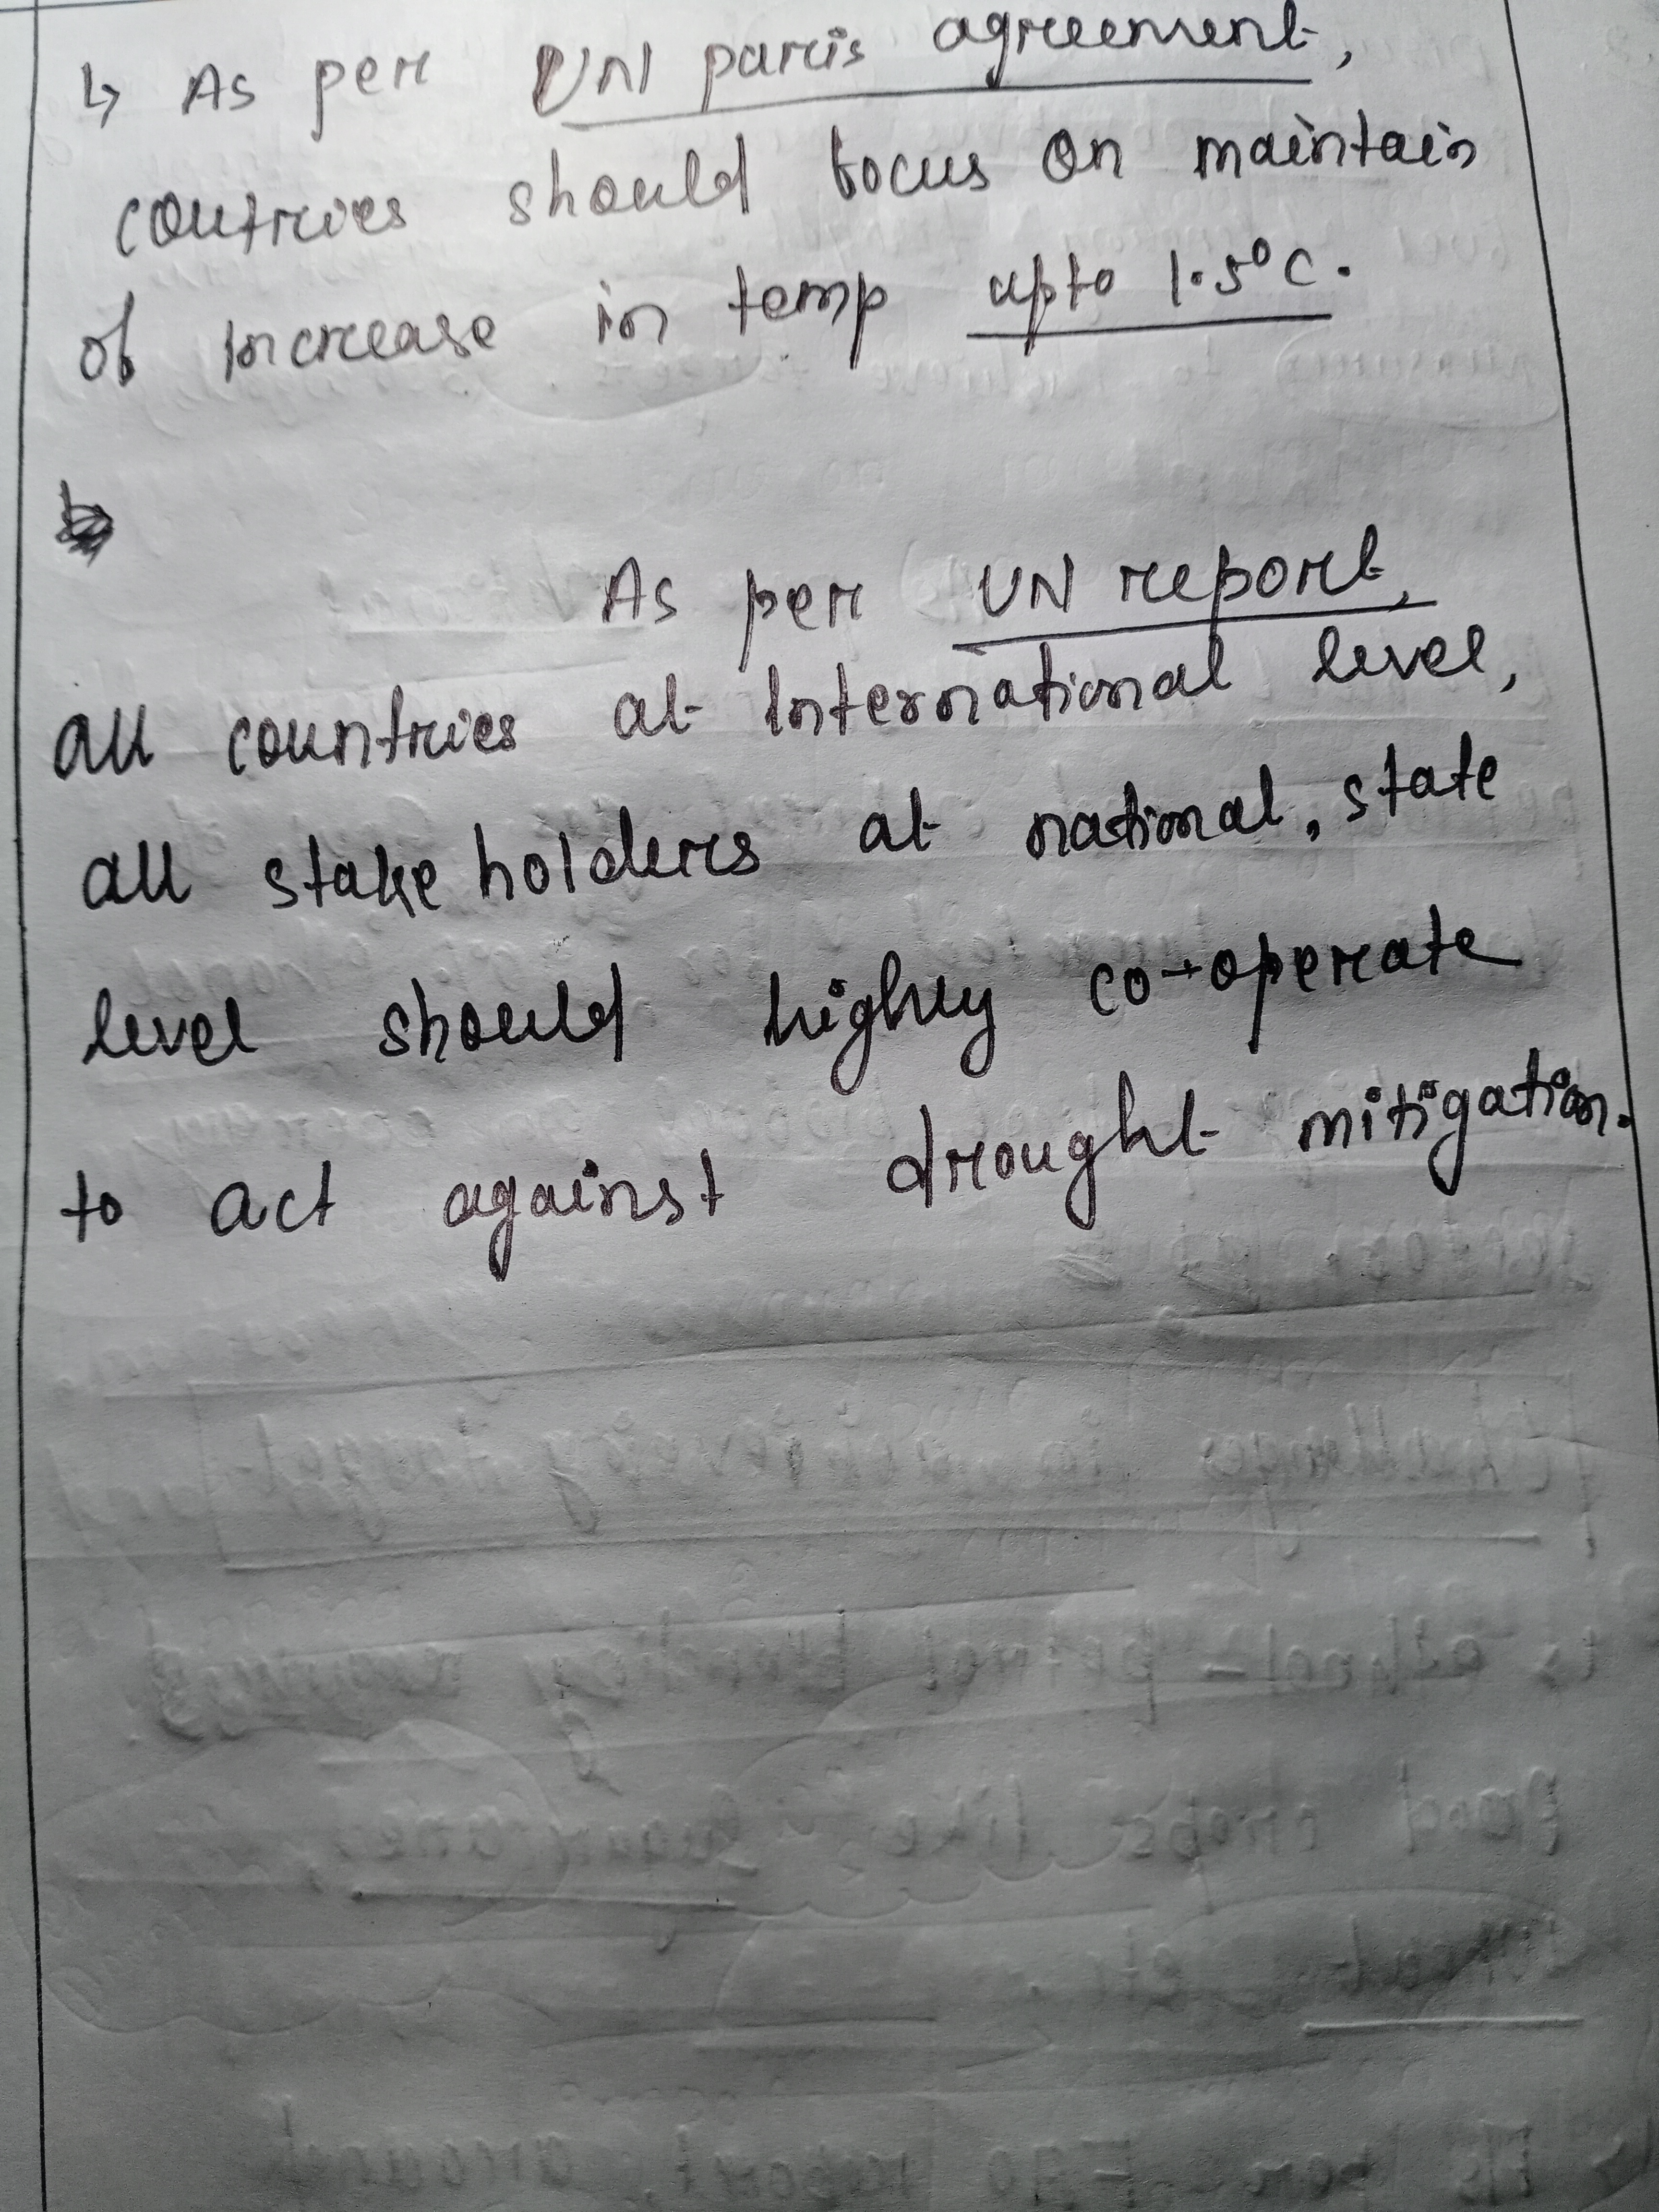 ↳ As per UN paris agreement,
coutries should focus on maintain
of increase in temp upto 1.5°C.
As per UN report,
all countries at International level,
all stake holders at national, state
level should highly co-operate
to act against drought mitigation.